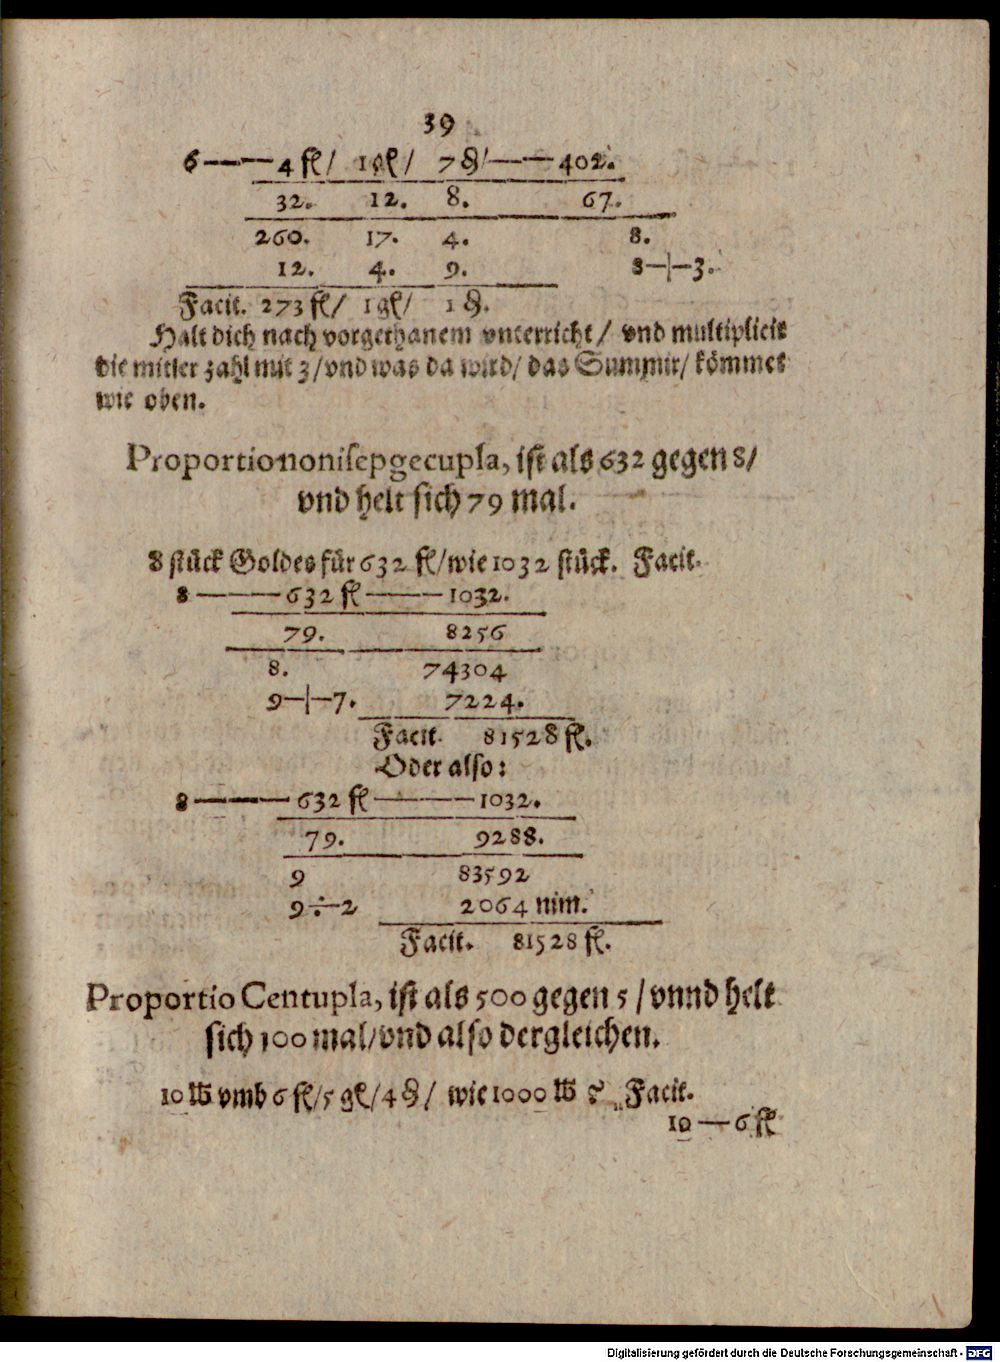 39
6 ——— 4 fl/ 1gl/ 7 ₰/ —— 402.
32. 12. 8. 67.
260. 17. 4. 8.
12. 4. 9. 8—|—3.
Facit. 273 fl/ 1gl/ 1 ₰.
Halt dich nach vorgethanem vnterricht/ vnd multiplicir
die mitler zahl mit 3/vnd was da wird/ das Summir/ kömmet
wie oben.
Proportio noniſepgecupla, iſt als 632 gegen 8/
vnd helt ſich 79 mal.
8 ſtück Goldes für 632 fl/wie 1032 ſtück. Facit.
8 ——— 632 fl ——— 1032.
79. 8256
8. 74304
9—|—7. 7224.
Facit. 81528 fl.
Oder alſo:
8 ——— 632 fl ——— 1032.
79. 9288.
9 83592
9÷2 2064 nim.
Facit. 81528 fl.
Proportio Centupla, iſt als 500 gegen 5 / vnnd helt
ſich 100 mal/vnd alſo dergleichen.
10 ℔ vmb 6 fl/5 gl/4 ₰/ wie 1000 ℔ ? Facit.
10 — 6 fl
Digitalisierung gefördert durch die Deutsche Forschungsgemeinschaft - DFG